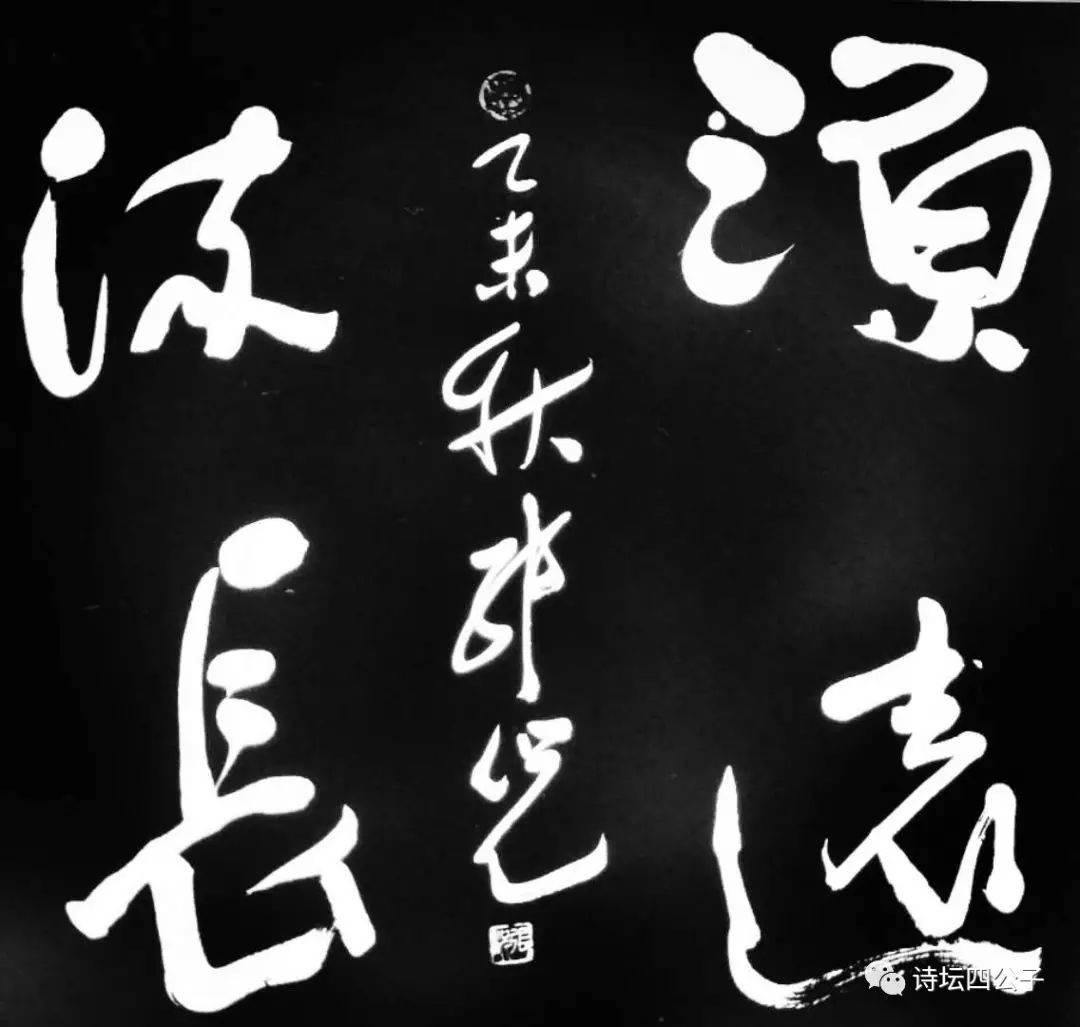 源遠
流長
乙未秋
诗坛四公子